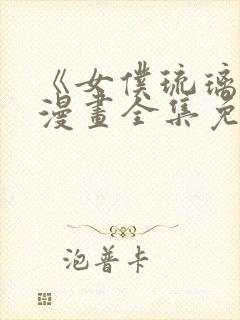 《女僕琉璃
漫畫全集免
泡普卡